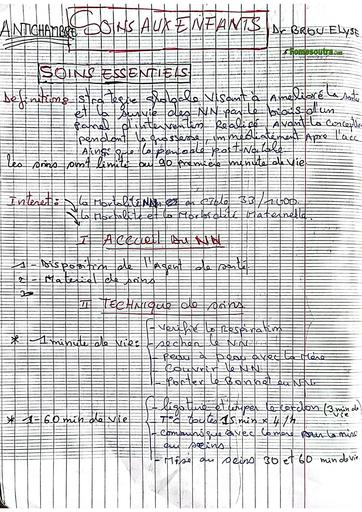 ANTICHAMBRE SOINS AUX ENFANTS Dr BROU-ELYSE
Fomesoutra.com
SOINS ESSENTIELS
Définitions strategie globale Visant à Amelioré la santé
et la survie des NN par le biais d'un
d'intervention Realisé Avant la Conception
pendant la grossesse immédiatement Apre l'acc
Ainsi que la periode post-Natale.
les soins sont limité au 90 première minute de vie
Interet: la Mortalité en 33/1000
la Mortalité et la Morbidité Maternelle.
I Accueil du NN
1 - Disposition de l'Agent de santé
2 - Materiel de soins
3-
II TECHNIQUE de soins
* 1 minute de vie: - verifié la Respiration
- sechen le NN
- peau à peau avec la Mère
- Couvrir le NN
- porter le Bonnet au NN.
* 1-60 min de vie - ligaturé et couper le cordon (3 min de vie
- T°C toutes 15 min x 4/h
- communiqué avec la mere pour la mise
au seins
- Mise au seins 30 et 60 min de vie